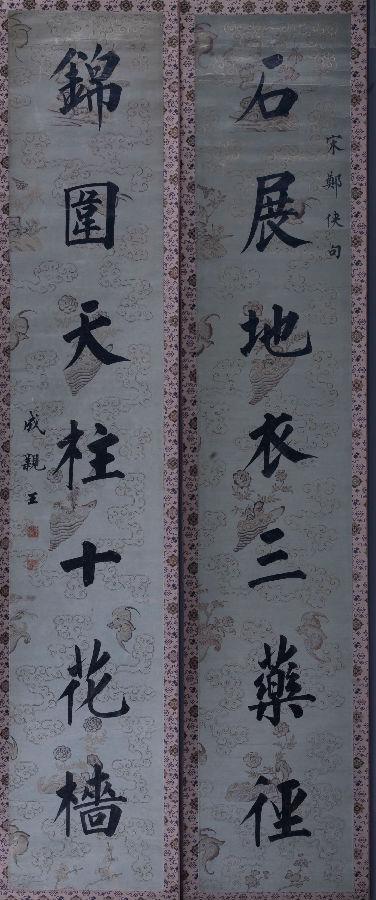 宋鄭俠句
石展地衣三藥徑
錦圍天柱十花檣
成親王